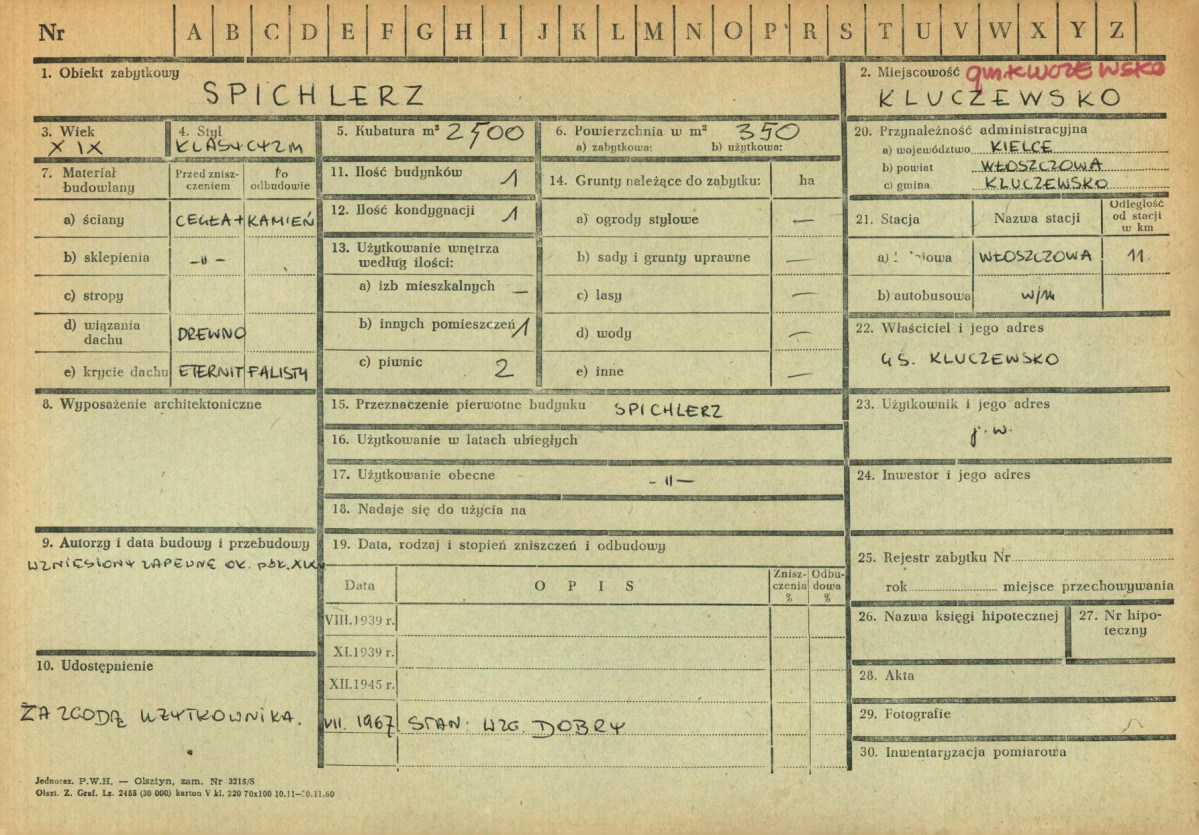 Nr A B C D E F G H I J K L M N O P R S T U V W X Y Z
1. Obiekt zabytkowy
SPICHLERZ
2. Miejscowość gm. KLUCZEWSKO
KLUCZEWSKO
3. Wiek
XIX
4. Styl
KLASYCYZM
5. Kubatura m³ 2500
6. Powierzchnia w m² 350
a) zabytkowa: b) użytkowa:
7. Materiał budowlany
Przed zniszczeniem
Po odbudowie
a) ściany CEGŁA + KAMIEŃ
b) sklepienia -"-
c) stropy
d) wiązania dachu DREWNO
e) krycie dachu ETERNIT FALISTY
8. Wyposażenie architektoniczne
9. Autorzy i data budowy i przebudowy
WZNIESIONY ZAPEWNE OK. poł. XIX w
10. Udostępnienie
ZA ZGODĄ UŻYTKOWNIKA.
11. Ilość budynków 1
12. Ilość kondygnacji 1
13. Użytkowanie wnętrza według ilości:
a) izb mieszkalnych —
b) innych pomieszczeń 1
c) piwnic 2
14. Grunty należące do zabytku: ha
a) ogrody stylowe —
b) sady i grunty uprawne —
c) lasy —
d) wody —
e) inne —
15. Przeznaczenie pierwotne budynku SPICHLERZ
16. Użytkowanie w latach ubiegłych
17. Użytkowanie obecne -"-
18. Nadaje się do użycia na
19. Data, rodzaj i stopień zniszczeń i odbudowy
Data OPIS Zniszczenia % Odbudowa %
VIII.1939 r.
XI.1939 r.
XII.1945 r.
VII. 1967 STAN: WZG. DOBRY
20. Przynależność administracyjna
a) województwo KIELCE
b) powiat WŁOSZCZOWA
c) gmina KLUCZEWSKO
21. Stacja Nazwa stacji Odległość od stacji w km
a) WŁOSZCZOWA 11
b) autobusowa w/m
22. Właściciel i jego adres
GS. KLUCZEWSKO
23. Użytkownik i jego adres
j. w.
24. Inwestor i jego adres
25. Rejestr zabytku Nr
rok miejsce przechowywania
26. Nazwa księgi hipotecznej
27. Nr hipoteczny
28. Akta
29. Fotografie
30. Inwentaryzacja pomiarowa
Jednoraz. P.W.H. — Olsztyn, zam. Nr 3215/S
Olszt. Z. Graf. Lz. 2485 (30 000) karton V kl. 220 70x100 10.11—30.11.60